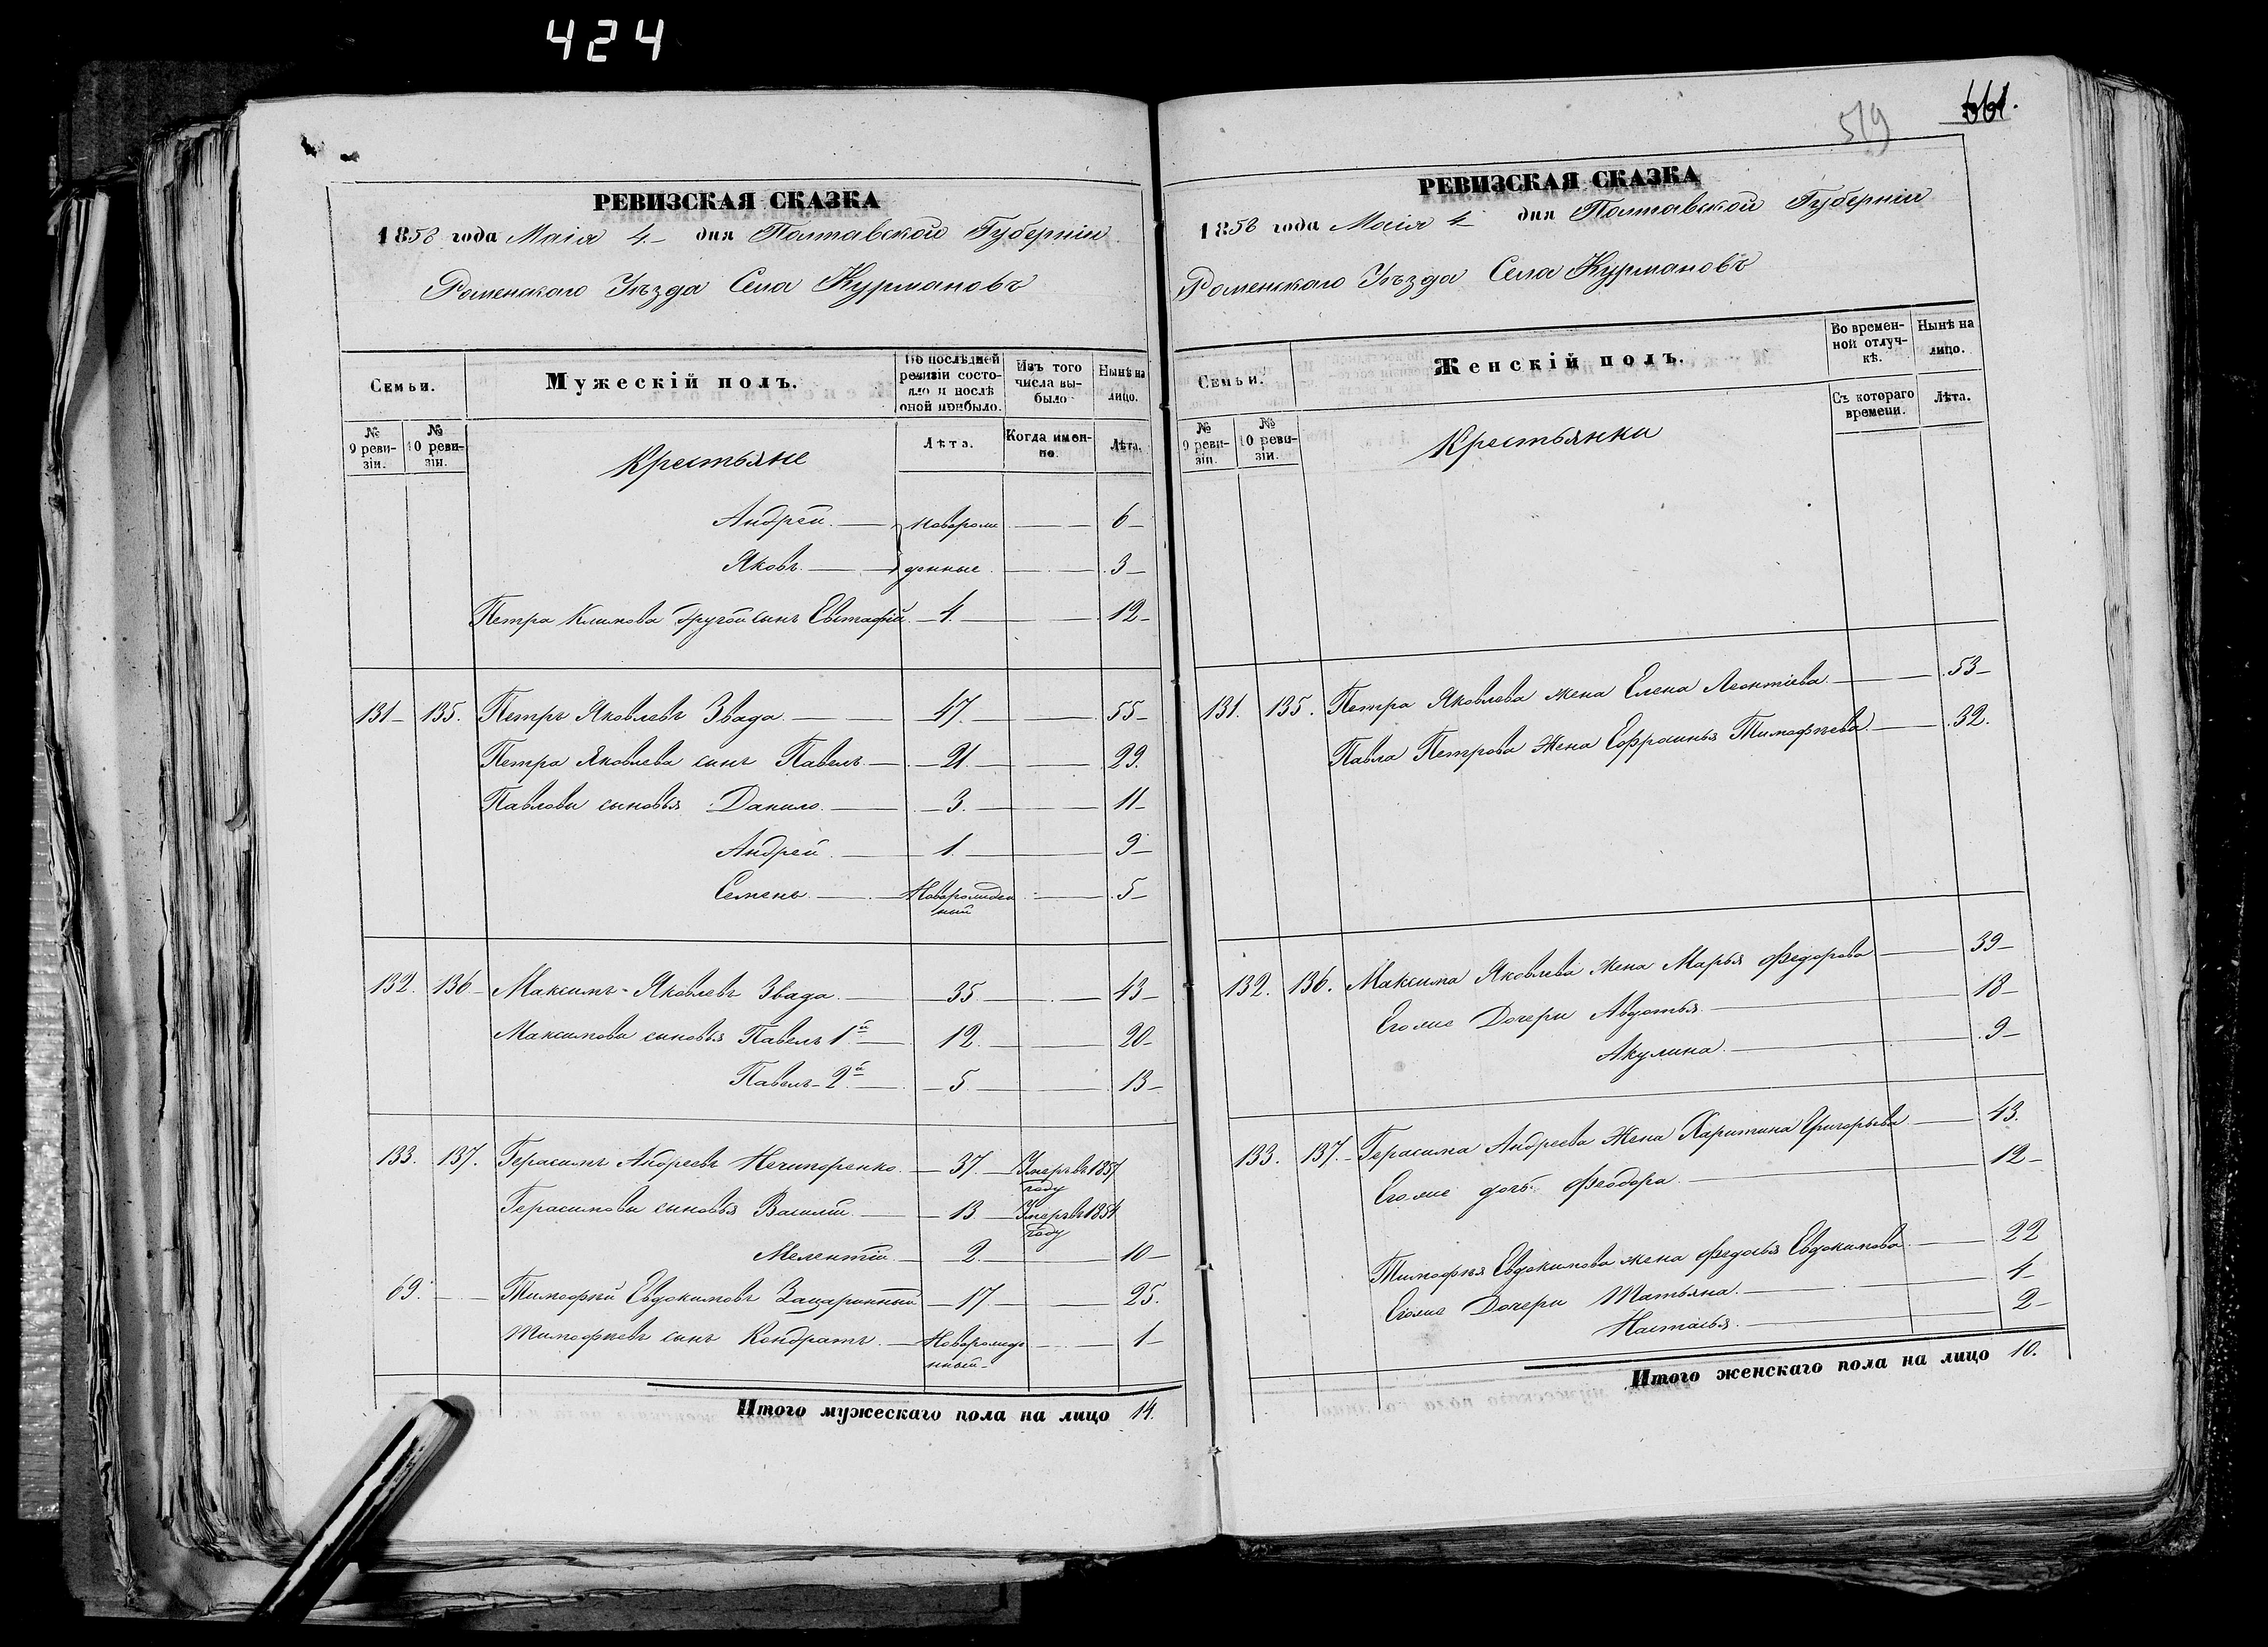 424
РЕВИЗСКАЯ СКАЗКА
1858 года Маія 4 дня Полтавской Губерніи
Роменскаго Уѣзда Села Курмановъ
Семьи.
Мужескій полъ.
По послѣдней ревизіи состояло и послѣ оной прибыло.
Изъ того числа выбыло
Нынѣ на лицо.
№ 9 ревизіи.
№ 10 ревизіи.
Крестьяне
Лѣта.
Когда именно.
Лѣта.
Андрей — новорож — 6
Яковъ — денные — 3
Петра Климова другой сынъ Евстафій — 4. — 12
131 — 135. Петръ Яковлевъ Звада — 47. — 55
Петра Яковлева сынъ Павелъ — 21. — 29.
Павловы сыновья Данило — 3. — 11
Андрей — 1. — 9
Семенъ — Новорожден — 5
ный
132. 136 Максимъ Яковлевъ Звада — 35 — 43
Максимовы сыновья Павелъ 1й — 12. — 20
Павелъ 2й — 5. — 13
133. 137. Герасимъ Андреевъ Нечипоренко — 37. — Умеръ въ 1857
году
Герасимовы сыновья Василій — 13 — Умеръ въ 1854
году
Мелентій — 2. — 10
69. — Тимофѣй Евдокимовъ Зацаринный — 17. — 25.
Тимофѣевъ сынъ Кондратъ — Новорожде — 1
нный
Итого мужескаго пола на лицо 14.
519
661.
РЕВИЗСКАЯ СКАЗКА
1858 года Маія 4 дня Полтавской Губерніи
Роменскаго Уѣзда Села Курмановъ
Семьи.
Женскій полъ.
Во временной отлучкѣ.
Нынѣ на лицо.
№ 9 ревизіи.
№ 10 ревизіи.
Крестьянки
Съ котораго времени.
Лѣта.
131. 135. Петра Яковлева жена Елена Леонтіева — 53
Павла Петрова жена Ефросинья Тимофѣева — 32.
132. 136. Максима Яковлева жена Марья Федорова — 39
Егоже Дочери Авдотья — 18
Акулина — 9
133. 137. Герасима Андреева жена Харитина Григорьева — 43.
Егоже дочь Феодора — 12
Тимофѣя Евдокимова жена Федосья Евдокимова — 22
Егоже Дочери Татьяна — 4
Настасья — 2
Итого женскаго пола на лицо 10.